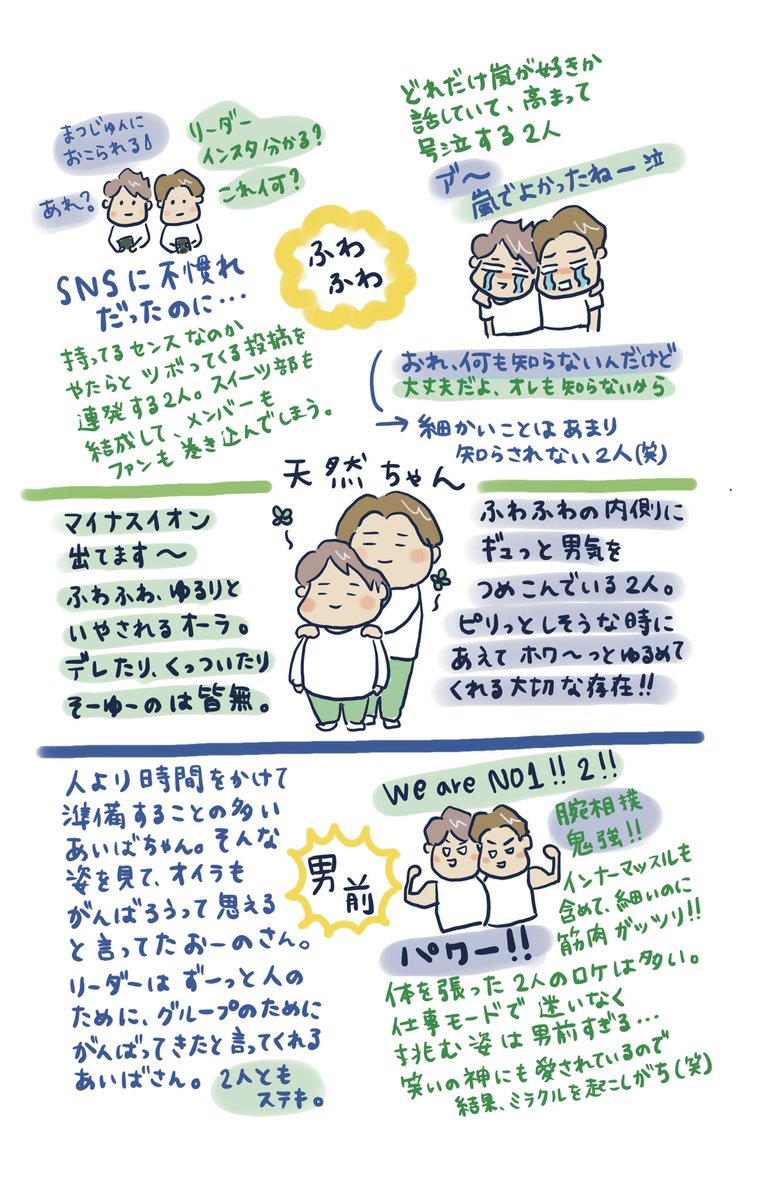 まつじゅんに
おこられる
あれ?
リーダー
インスタ分かる?
これ何?
SNSに不慣れ
だったのに…
持ってるセンスなのか
やたらと ツボってくる投稿を
連発する2人。スイーツ部も
結成して、メンバーも
ファンも巻き込んでしまう。
ふわ
ふわ
どれだけ嵐が好きか
話していて、高まって
号泣する2人
ア゛〜
嵐でよかったねー泣
おれ、何も知らないんだけど
大丈夫だよ、オレも知らないから
→細かいことはあまり
知らされない2人(笑)
天然ちゃん
マイナスイオン
出てます〜
ふわふわ、ゆるりと
いやされるオーラ。
デレたり、くっついたり
そーゆーのは皆無。
ふわふわの内側に
ギュっと男気を
つめこんでいる2人。
ピリっとしそうな時に
あえてホワ〜っとゆるめて
くれる大切な存在!!
人より時間をかけて
準備することの多い
あいばちゃん。そんな
姿を見て、オイラも
がんばろうって思える
と言ってたおーのさん。
リーダーはずーっと人の
ために、グループのために
がんばってきたと言ってくれる
あいばさん。2人とも
ステキ。
男前
We are NO1!! 2!!
腕相撲
鬼強!!
パワー!!
インナーマッスルも
含めて、細いのに
筋肉ガッツリ!!
体を張った2人のロケは多い。
仕事モードで迷いなく
挑む姿は男前すぎる…
笑いの神にも愛されているので
結果、ミラクルを起こしがち(笑)